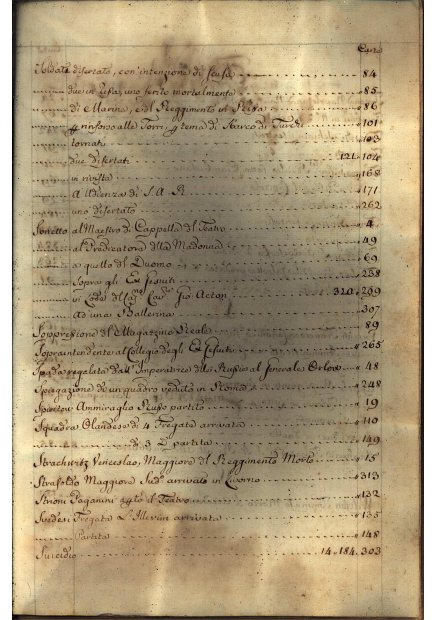 Carte
Soldati disertato, con' intenzione di scusa 84
due in rissa, uno ferito mortalmente 85
di Marina, e del Reggimento in Rissa 86
rinforzo alle Torri, tema di Sbarco di Turchi 101
tornati 103
due disertati 121. 104
in rivista 168
Udienza di S. A. R. 171
uno disertato 262
Sonetto al Maestro di Cappella del Teatro 4
al Predicatore della Madonna 49
a quello del Duomo 69
Sopra gli Ex Gesuiti 238
in Lode del Gio Acton 320. 299
Ad una Ballerina 307
Soppressione del Magazzino Reale 89
Sopraintendente al Collegio degl' Ex Gesuiti 265
Spada regalata dall' Imperatrice della Russia al Generale Orlow 48
Spiegazione di un quadro veduto in Roma 248
Ammiraglio Russo partito 19
Squadra Olandese di 4 Fregate arrivata 110
di 3 partita 149
Venceslao, Maggiore del Reggimento Morto 15
Strasoldo Maggiore Sudo arrivato in Livorno 313
Strioni Paganini il Teatro 132
Svedesi Fregata L'Illerim arrivata 135
Partita 148
Suicidio 14. 184. 303